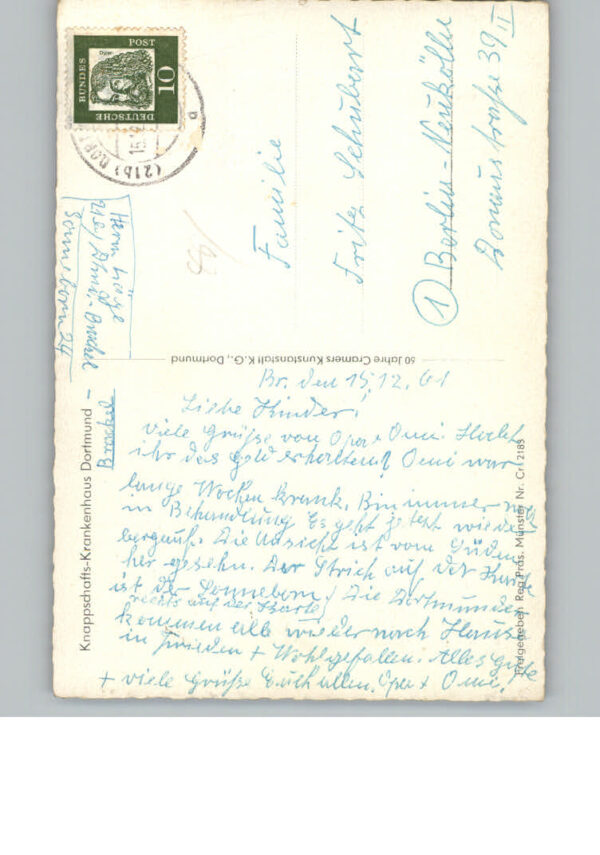 DEUTSCHE
BUNDES
POST
10
(21b) DOR
15.
a
Familie
Fritz Schubert
① Berlin-Neukölln
Donaustraße 39 II
Herm.
21b)
Brackel
Sonneborn 24
50 Jahre Cramers Kunstanstalt K.G., Dortmund
Knappschafts-Krankenhaus Dortmund –
Brackel
Br. den 15.12.61
Liebe Kinder!
viele Grüße von Opa + Omi. Habt
ihr das Geld erhalten? Omi war
lange Wochen krank. Bin immer noch
in Behandlung. Es geht jetzt wieder
bergauf. Die Ansicht ist vom Süden
her gesehn. Der Strich auf der Karte
ist der Sonneborn
rechts auf der Karte
Die Dortmunder
kommen alle wieder nach Hause
in Frieden + Wohlgefallen. Alles Gute
+ viele Grüße Euch allen. Opa + Omi.
Freigegeben Reg. Präs. Münster Nr. Cr. 2183